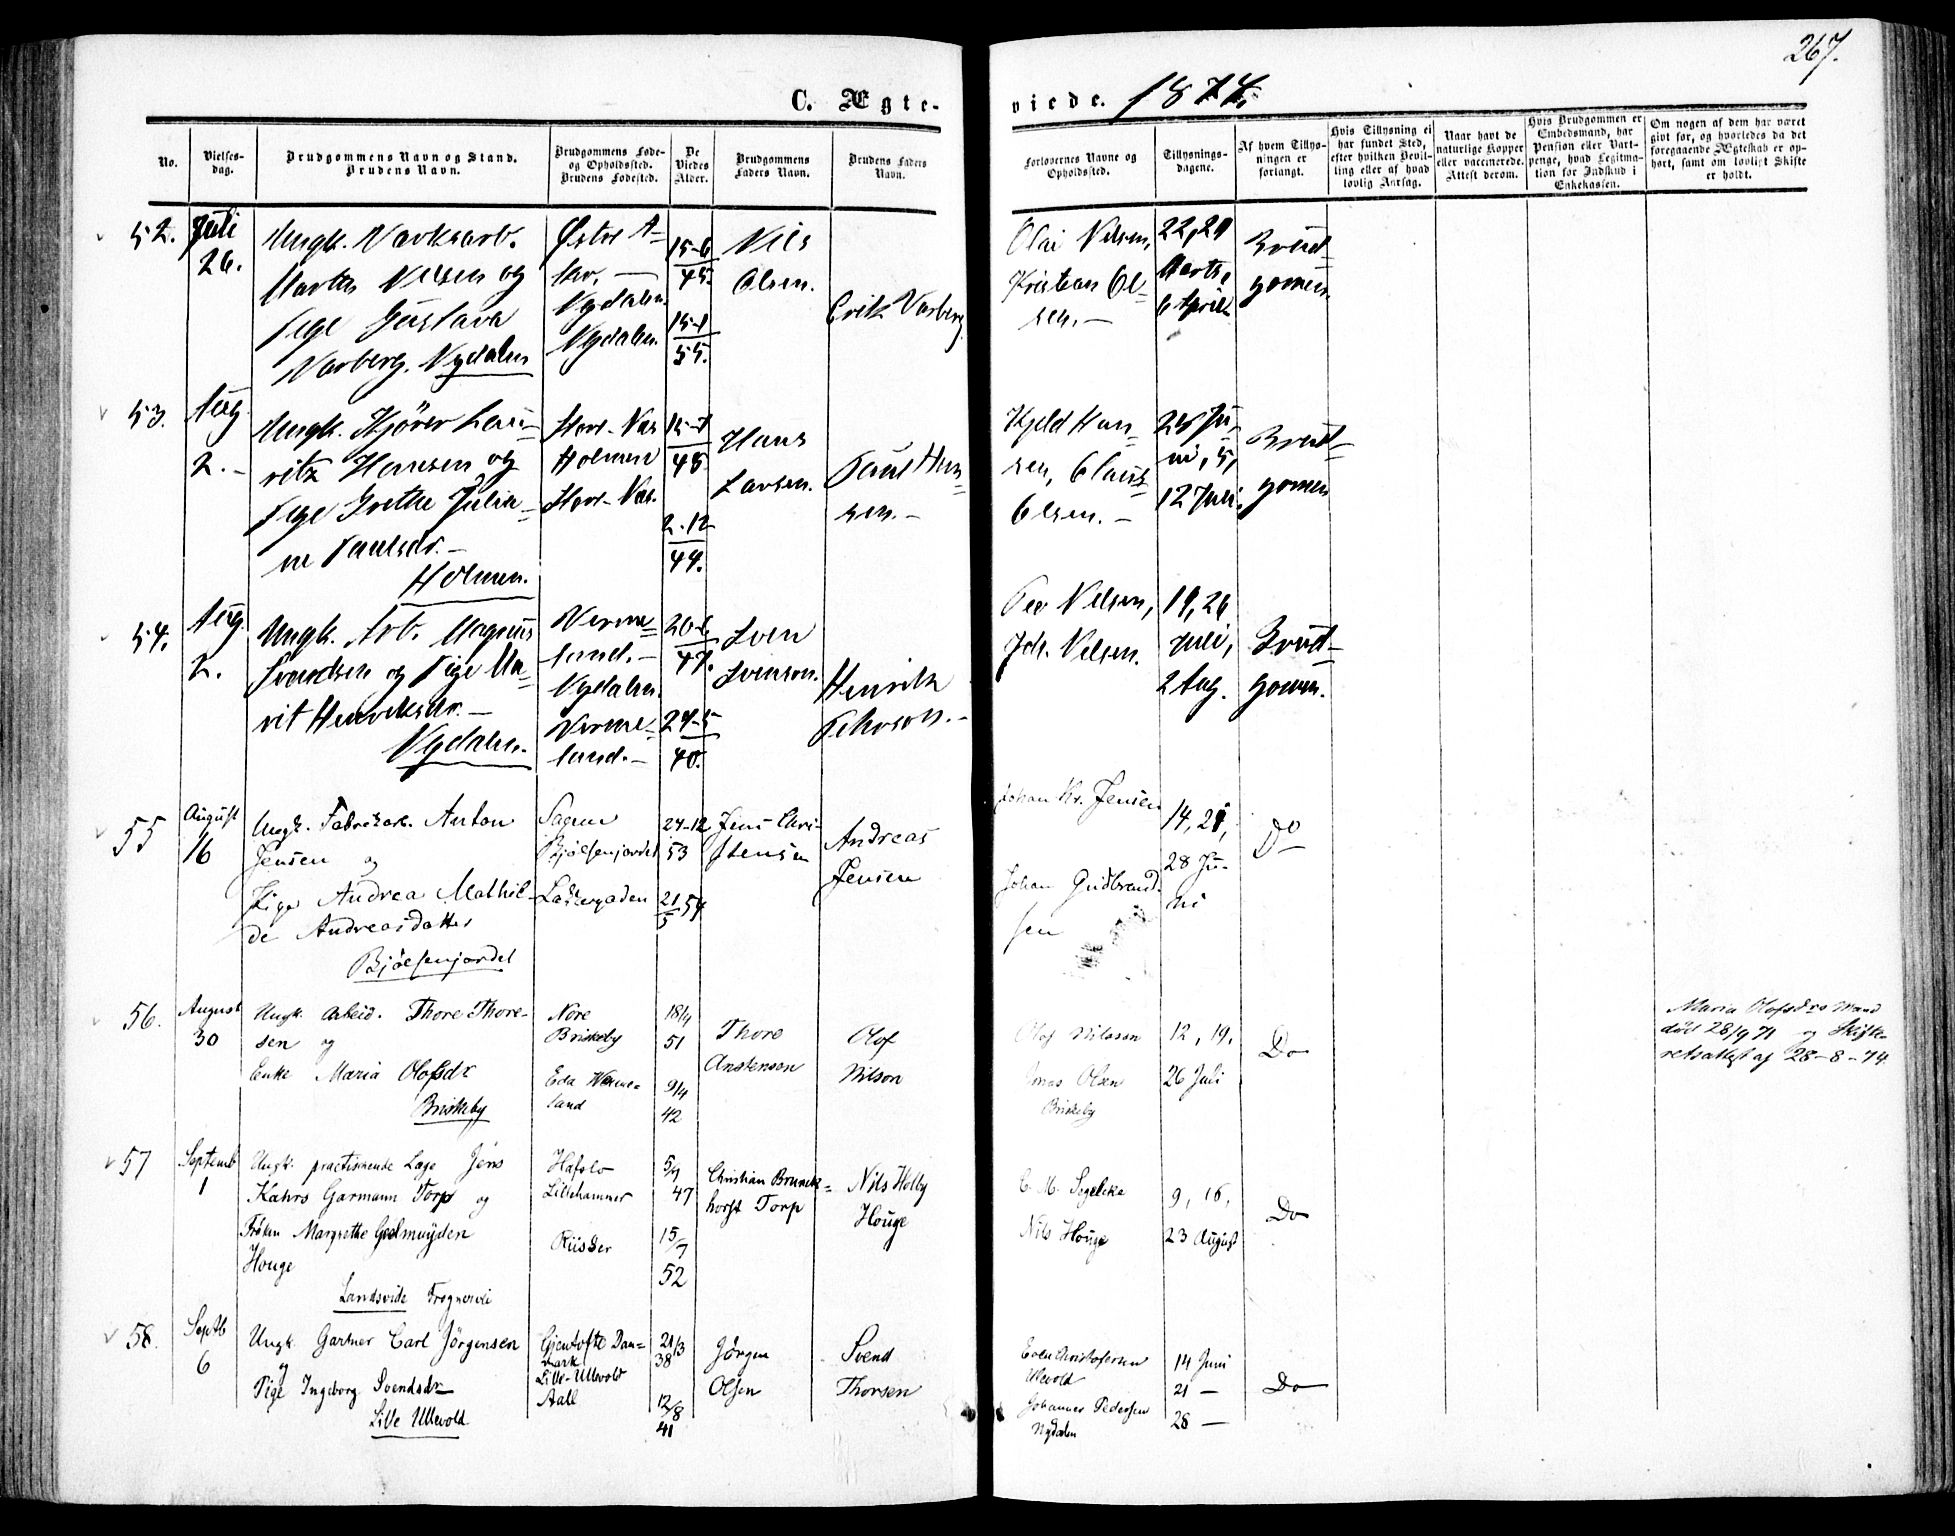 267.
C. Ægte-
viede. 1874.
No.
Vielses-
dag.
Brudgommens Navn og Stand.
Brudens Navn.
Brudgommens Føde-
og Opholdssted.
Brudens Fødested.
De
Viedes
Alder.
Brudgommens
Faders Navn.
Brudens Faders
Navn.
Forlovernes Navne og
Opholdssted.
Tillysnings-
dagene.
Af hvem Tillys-
ningen er
forlangt.
Hvis Tillysning ei
har fundet Sted,
efter hvilken Bevil-
ling eller af hvad
lovlig Aarsag.
Naar havt de
naturlige Kopper
eller vaccinerede.
Attest derom.
Hvis Brudgommen er
Embedsmand, har
Pension eller Vart-
penge, hvad Legitima-
tion for Indskud i
Enkekassen.
Om nogen af dem har været
givt før, og hvorledes da det
foregaaende Ægteskab er op-
hørt, samt om lovligt Skifte
er holdt.
52.
Juli
26.
Ungk. Værksarb.
Martin Nilsen og
Pige Gustava
Varberg. Nydalen
Østre A-
ker. —
Nydalen.
Nydalen.
15-6
45.
15-1
55.
Nils
Olsen.
Erik Varberg
Olai Nilsen,
Kristian Ol-
sen. —
22, 29
Marts,
6 April
Brud-
gomen.
53.
Aug
2. -
Ungk. Kjörer Lau-
ritz Hansen og
Pige Grethe Julia-
ne Paulsdr. —
Holmen.
Holmen
45
2-12
44.
Hans
Larsen.
Paul Han-
sen. —
Kjeld Han-
sen, Claus
Olsen. —
24 Ju-
ni, 5,
12 Juli.
Brud-
gomen
54.
Aug.
2.
Ungk. Arb. Magnus
Svendsen og Pige Ma-
rit Henriksdr. —
Nydalen.
Verme-
land. —
Nydalen.
Verme-
land. —
20-6
47.
24-5
40.
Sven
Svenson.
Henrik
Per Nilsen,
Joh. Nilsen.
19, 26
Juli,
2 Aug.
Brud-
gomen.
55
August
16
Ungk. Fabrikarb. Anton
Jensen og
Pige Andrea Mathil-
de Andreasdatter
Bjölsenjordet
Sagene
Bjölsenjordet
Lakkegaden
24-12
53
21
5 54
Jens Chri-
stensen
Andreas
Jensen
Johan Kr. Jensen
Johan Gudbrand-
sen
14, 21,
28 Ju-
ni
Do
56.
August
30
Ungk. Arbeid. Thore Thore-
sen og
Enke Maria Olofsdr
Briskeby
Nore
Briskeby
Eda Werme-
land
18/4
51
9/4
42
Thore
Anstensen
Olof
Nilson
Olof Nilsson
Jonas Olsen
Briskeby
12, 19,
26 Juli
Do
Maria Olofsdrs Mand
død 28/9 71 og Skifte-
retsattest af 28-8-74
57
Septemb
1
Ungk. practiserende Læge Jens
Kahrs Garmann Torp og
Frøken Margrethe Geelmuyden
Houge
Landsvide Frognervei
Hafslo
Lillehammer
Riisøer
5/7
47
15/7
52
Christian Brunck-
horst Torp
Nils Holby
Houge
C. M. Segelcke
Nils Houge
9, 16,
23 August
Do
58.
Septb
6
Ungk. Gartner Carl Jörgensen
og
Pige Ingeborg Svendsdr
Lille Ullevold.
Gjentofte Dan-
mark
Lille-Ullevold
Aall
21/3
38
12/8
41
Jörgen
Olsen
Svend
Thorsen
Even Christofersen
Ullevold
Johannes Pedersen
Nydalen
14 Juni
21 —
28 —
Do